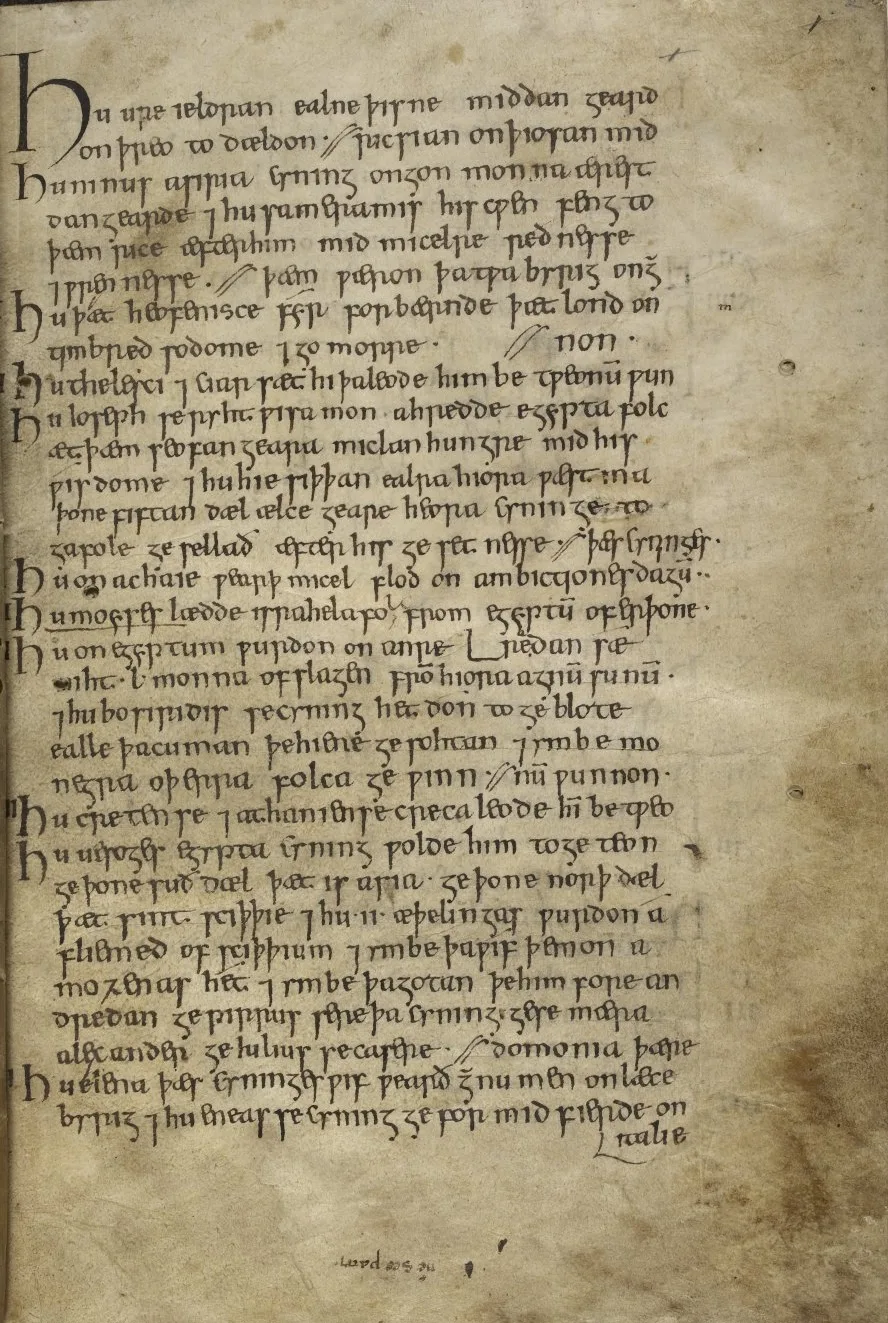 Hu ure ieldran ealne þisne middan geard
on þreo to dældon · // ricsian on þiosan mid
Hu ninus asiria cyning ongon monna ærest
dangearde ⁊ hu sameramis his cƿen feng to
þæm rice æfter him mid micelre reðnesse
⁊ ƿrennesse · // þæm ƿæron þa tƿa byrig onḡ
Hu þæt heofenisce fyr forbærnde þæt lond on
timbred sodome ⁊ gomorre · // non ·
Hu thelesci ⁊ ciarsathi þa leode him betƿeonū ƿun
Hu Ioseph se ryht ƿisa mon ahredde egypta folc
æt þæm seofan geara miclan hungre mid his
ƿisdome ⁊ hu hie siþþan ealra hiora ƿæstma
þone fiftan dæl ælce geare heora cyninge to
gafole gesellað æfter his gesetnesse · // þæs cyninges ·
Hu on achaie ƿearþ micel flod on ambictiones dagū ··
Hu moyses lædde israhela folc from egyptū ofer þone ·
Hu on egyptum ƿurdon on anre readan sæ
niht · L · monna ofslagen frō hiora agnū sunū ·
⁊ hu bosiridis se cyning het don to geblote
ealle þa cuman þe hiene gesohtan ⁊ ymbe mo
negra oþerra folca geƿinn · // nū ƿunnon ·
Hu cretense ⁊ athaniense creca leode hī betƿeo
Hu uesoges egypta cyning ƿolde him to geteon
ge þone suð dæl þæt is asia · ge þone norþ dæl
þæt sint sciþþie ⁊ hu · ii · æþelingas ƿurdon a
fliemed of sciþþium ⁊ ymbe þa ƿif þe mon a
moxenas het ⁊ ymbe þa gotan þe him fore an
dredan ge pirrus se reþa cyning · ge se mæra
alexander ge Iulius se casere · // domonia þære
Hu elena þæs cyninges ƿif ƿearð ḡnumen on læce
byrig ⁊ hu eneas se cyning ge for mid fierde on
italie